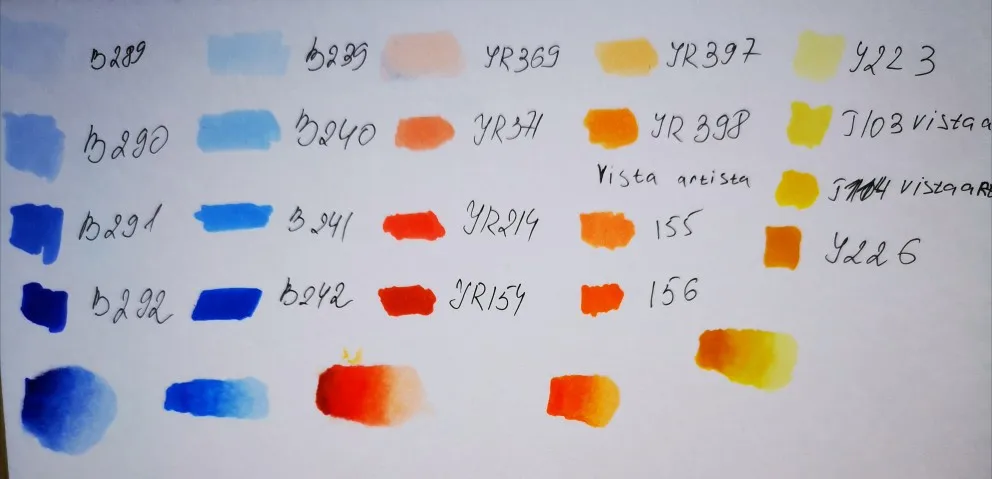 B289 B239 YR369 YR397 Y223
B290 B240 YR371 YR398 J103 vistaa
Vista artista J104 vistaaRt
B291 B241 YR214 155 Y226
B292 B242 YR154 156